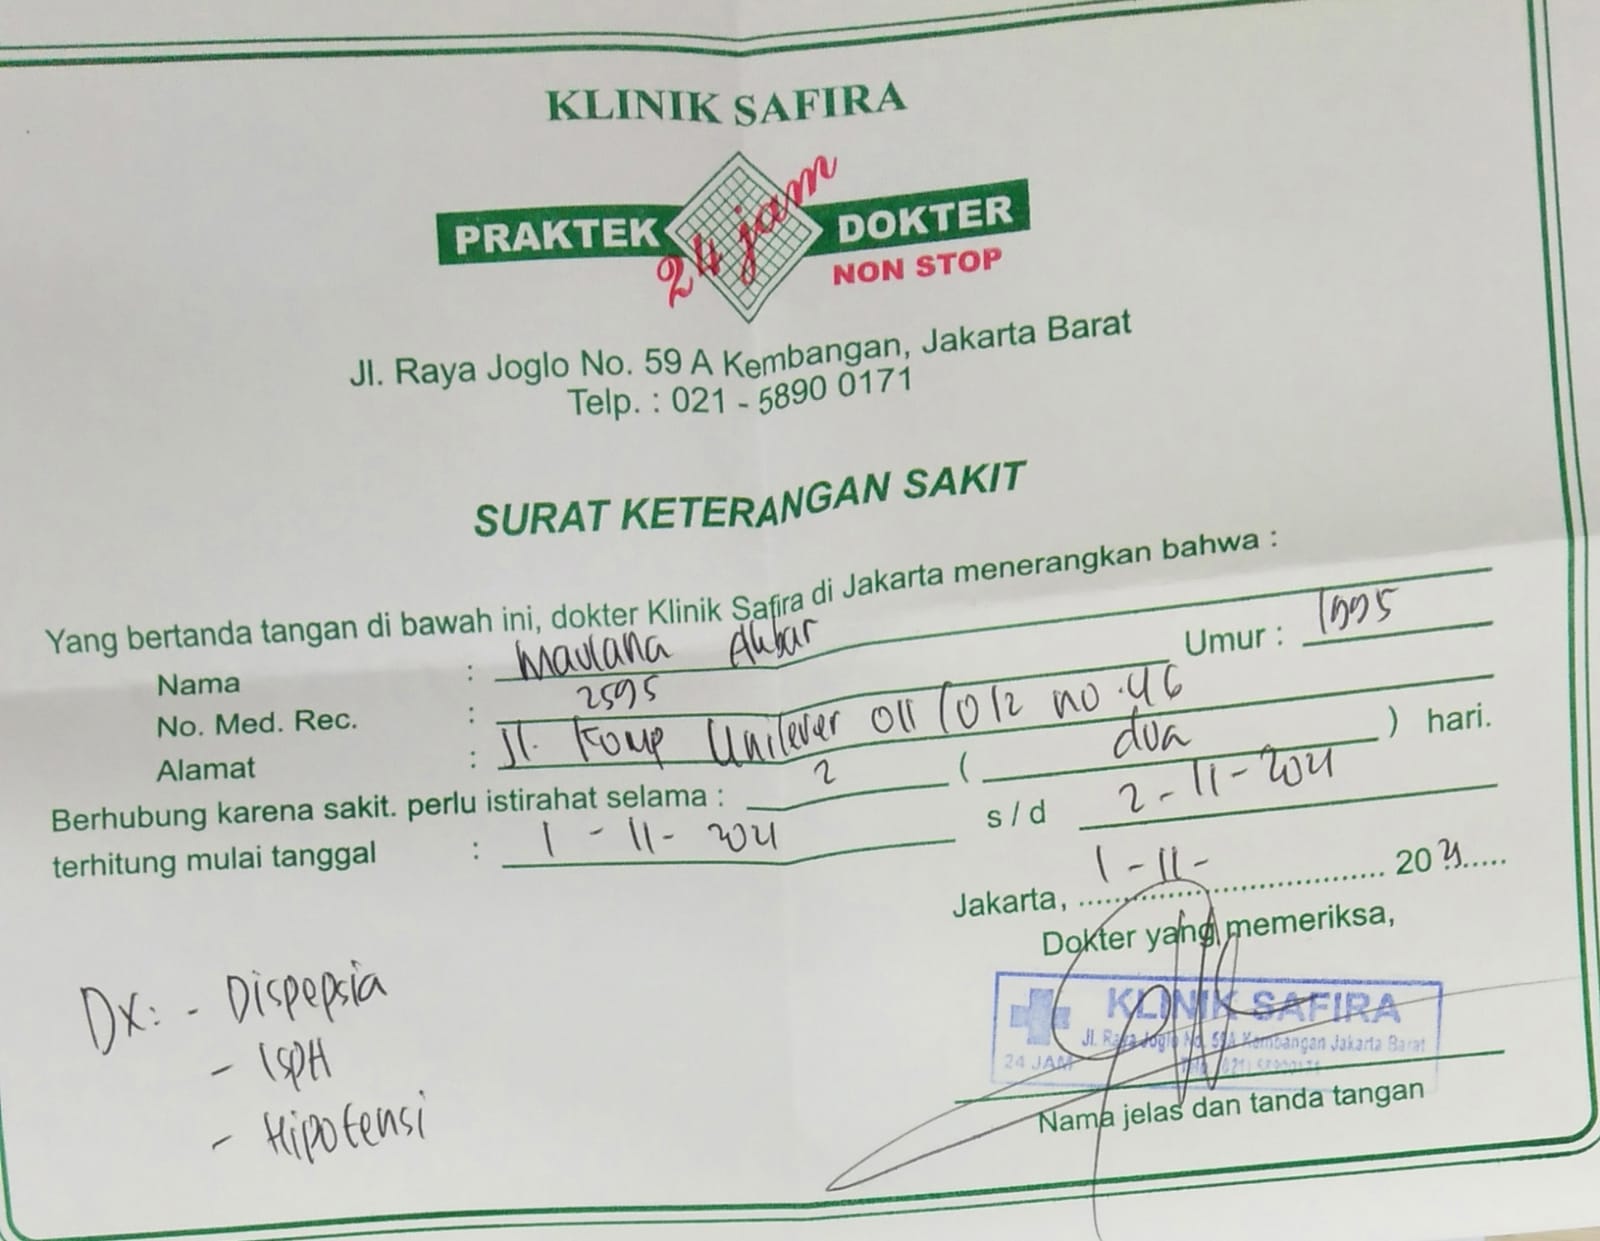 KLINIK SAFIRA
PRAKTEK 24 jam DOKTER
NON STOP
Jl. Raya Joglo No. 59 A Kembangan, Jakarta Barat
Telp. : 021 - 5890 0171
SURAT KETERANGAN SAKIT
Yang bertanda tangan di bawah ini, dokter Klinik Safira di Jakarta menerangkan bahwa :
Nama : Maulana Akbar Umur : 1995
No. Med. Rec. : 2595
Alamat : Jl. Komp Unilever 011/012 no.46
Berhubung karena sakit. perlu istirahat selama : 2 ( dua ) hari.
terhitung mulai tanggal : 1-11-2021 s/d 2-11-2021
Jakarta, 1-11- 2021
Dokter yang memeriksa,
Dx: - Dispepsia
- ISPA
- Hipotensi
KLINIK SAFIRA
Jl. Raya Joglo No. 59A Kembangan Jakarta Barat
24 JAM
Nama jelas dan tanda tangan